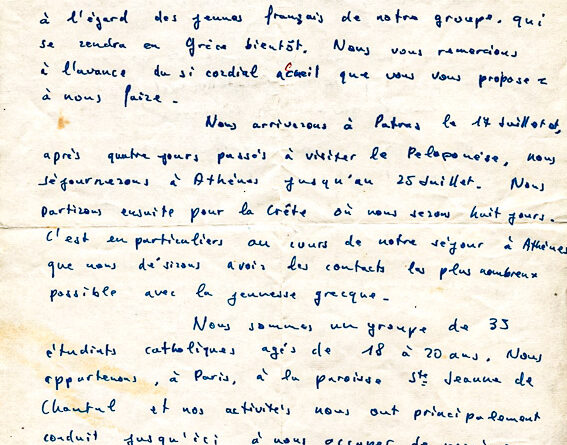 à l'égard des jeunes français de notre groupe, qui
se rendra en Grèce bientôt. Nous vous remercions
à l'avance du si cordial accueil que vous vous propose=
à nous faire.
Nous arriverons à Patras le 17 Juillet et,
après quatre jours passés à visiter le Péloponèse, nous
séjournerons à Athénes jusqu'au 25 Juillet. Nous
partirons ensuite pour la Crête où nous serons huit jours.
C'est en particuliers au cours de notre séjour à Athénes
que nous désirons avoir les contacts les plus nombreux
possible avec la jeunesse grecque.
Nous sommes un groupe de 33
étudiants catholiques agés de 18 à 20 ans. Nous
appartenons, à Paris, à la paroisse Ste Jeanne de
Chantal et nos activités nous ont principalement
conduit jusqu'ici à nous occuper de